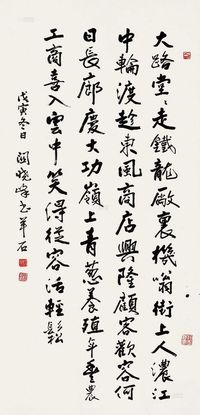 大路堂堂走鐵龍廠裏機翁街上人濃江
中輪渡趁東風商店興隆顧客歡容何
日長廊慶大功嶺上青葱養殖年豐農
工商喜入雲中笑得從容活輕鬆
戊寅冬日 閻曉峰書 羊石